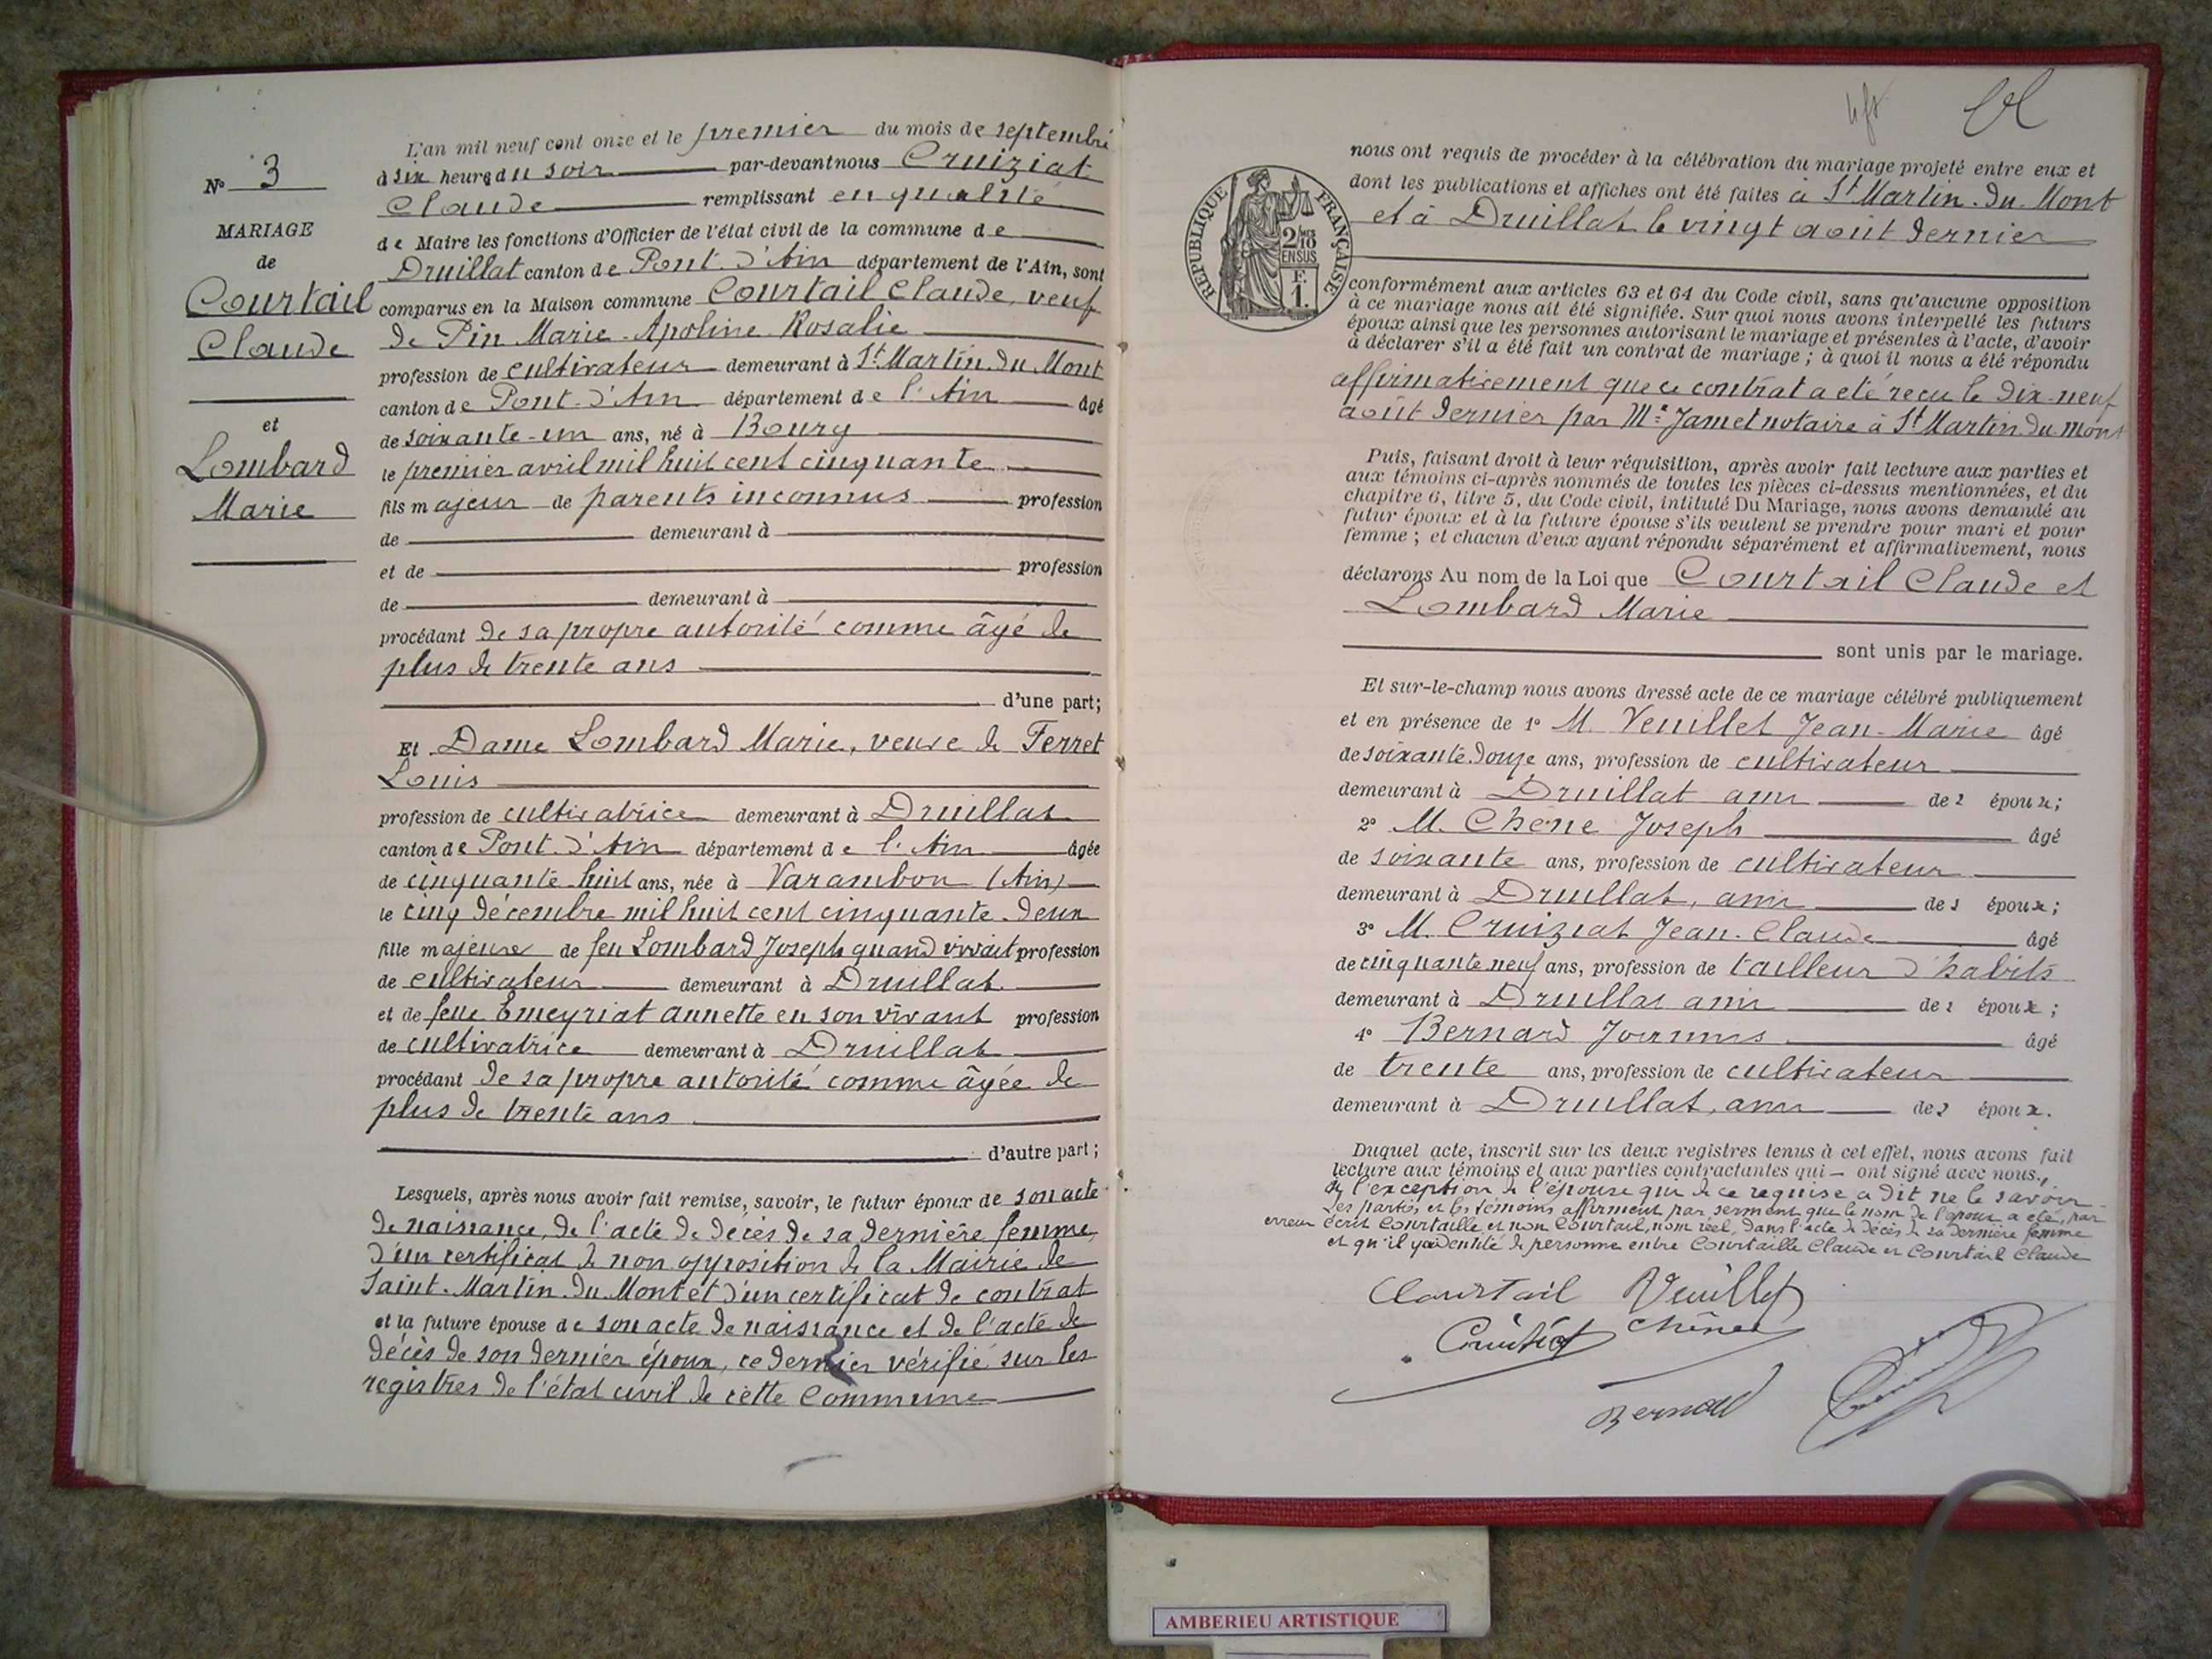 N° 3
MARIAGE
de
Courtail
Claude
et
Lombard
Marie
L'an mil neuf cent onze et le premier du mois de septembre
à six heures du soir par-devant nous Cruiziat
Claude remplissant en qualité
de Maire les fonctions d'Officier de l'état civil de la commune de
Druillat canton de Pont-d'Ain département de l'Ain, sont
comparus en la Maison commune Courtail Claude, veuf
de Pin Marie-Apoline Rosalie
profession de cultivateur demeurant à St Martin-du-Mont
canton de Pont-d'Ain département de l'Ain âgé
de soixante-un ans, né à Bourg
le premier avril mil huit cent cinquante
fils majeur de parents inconnus profession
de demeurant à
et de profession
de demeurant à
procédant de sa propre autorité comme âgé de
plus de trente ans
d'une part;
Et Dame Lombard Marie, veuve de Ferret
Louis
profession de cultivatrice demeurant à Druillat
canton de Pont-d'Ain département de l'Ain âgée
de cinquante-huit ans, née à Varambon (Ain)
le cinq décembre mil huit cent cinquante-deux
fille majeure de feu Lombard Joseph quand vivait profession
de cultivateur demeurant à Druillat
et de feue Emeyriat Annette en son vivant profession
de cultivatrice demeurant à Druillat
procédant de sa propre autorité comme âgée de
plus de trente ans
d'autre part;
Lesquels, après nous avoir fait remise, savoir, le futur époux de son acte
de naissance, de l'acte de décès de sa dernière femme,
d'un certificat de non opposition de la Mairie de
Saint-Martin-du-Mont et d'un certificat de contrat
et la future épouse de son acte de naissance et de l'acte de
décès de son dernier époux, ce dernier vérifié sur les
registres de l'état civil de cette Commune
RÉPUBLIQUE FRANÇAISE
2/10 EN SUS
F.
1.
nous ont requis de procéder à la célébration du mariage projeté entre eux et
dont les publications et affiches ont été faites à St Martin-du-Mont
et à Druillat le vingt août dernier
conformément aux articles 63 et 64 du Code civil, sans qu'aucune opposition
à ce mariage nous ait été signifiée. Sur quoi nous avons interpellé les futurs
époux ainsi que les personnes autorisant le mariage et présentes à l'acte, d'avoir
à déclarer s'il a été fait un contrat de mariage; à quoi il nous a été répondu
affirmativement que ce contrat a été reçu le dix-neuf
août dernier par Me Jamet notaire à St Martin-du-Mont
Puis, faisant droit à leur réquisition, après avoir fait lecture aux parties et
aux témoins ci-après nommés de toutes les pièces ci-dessus mentionnées, et du
chapitre 6, titre 5, du Code civil, intitulé Du Mariage, nous avons demandé au
futur époux et à la future épouse s'ils veulent se prendre pour mari et pour
femme; et chacun d'eux ayant répondu séparément et affirmativement, nous
déclarons Au nom de la Loi que Courtail Claude et
Lombard Marie
sont unis par le mariage.
Et sur-le-champ nous avons dressé acte de ce mariage célébré publiquement
et en présence de 1° M. Veuillet Jean-Marie âgé
de soixante-douze ans, profession de cultivateur
demeurant à Druillat ami de 2 époux;
2° M. Chêne Joseph âgé
de soixante ans, profession de cultivateur
demeurant à Druillat, ami des époux;
3° M. Cruiziat Jean-Claude âgé
de cinquante neuf ans, profession de tailleur d'habits
demeurant à Druillat ami de 2 époux;
4° Bernard Joannes âgé
de trente ans, profession de cultivateur
demeurant à Druillat, ami de 2 époux.
Duquel acte, inscrit sur les deux registres tenus à cet effet, nous avons fait
lecture aux témoins et aux parties contractantes qui ont signé avec nous,
à l'exception de l'épouse qui de ce requise a dit ne le savoir
Les parties et les témoins affirment par serment que le nom de l'époux a été, par
erreur écrit Courtaille et non Courtail, nom réel, dans l'acte de décès de sa dernière femme
et qu'il y a identité de personne entre Courtaille Claude et Courtail Claude
Courtail Veuillet
Cruiziat Chêne
Bernard
AMBERIEU ARTISTIQUE